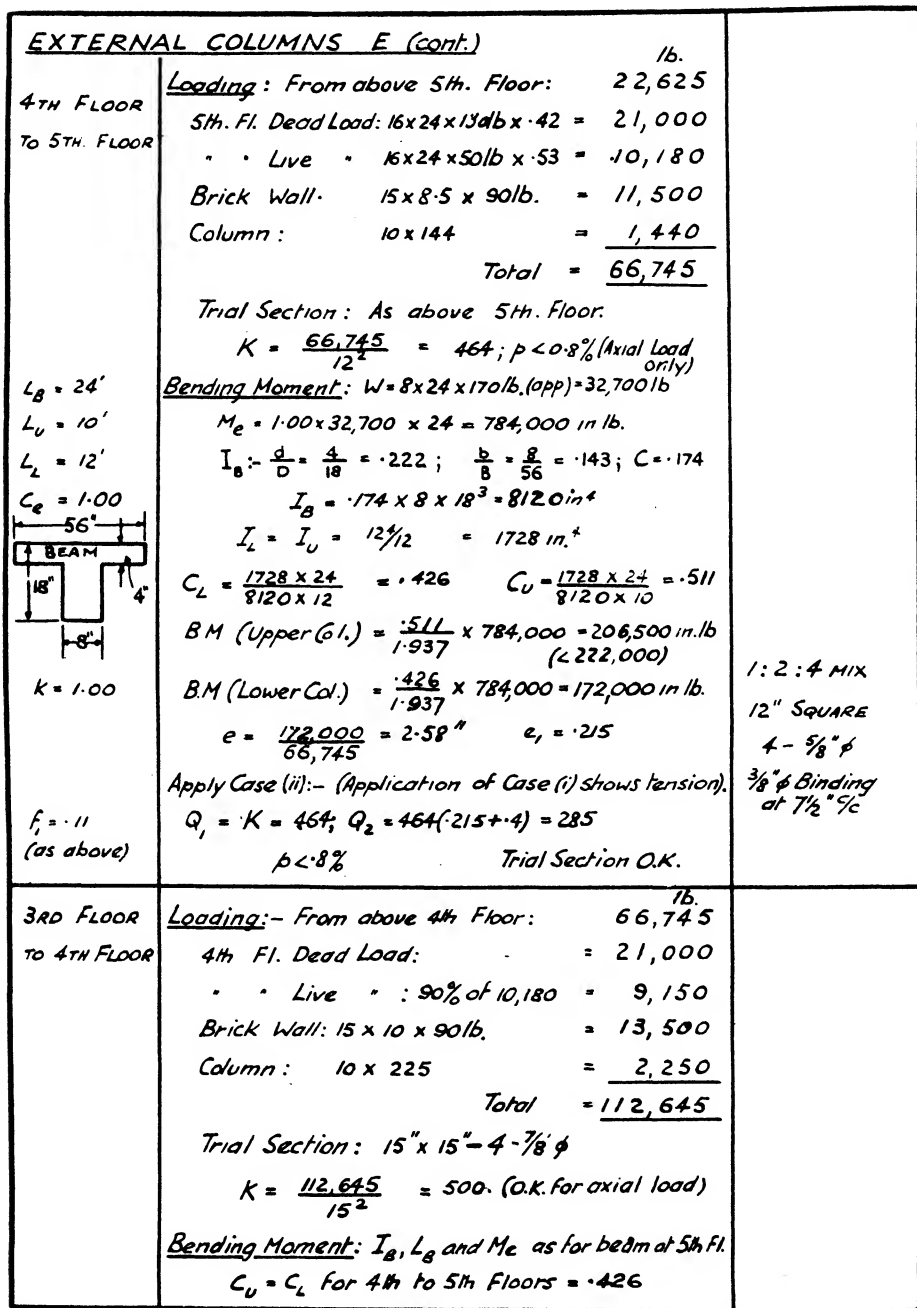 EXTERNAL COLUMNS E (cont.)
4TH FLOOR
TO 5TH. FLOOR
lb.
Loading: From above 5th. Floor: 22,625
5th. Fl. Dead Load: 16x24x130lb x ·42 = 21,000
" " Live " 16x24x50lb x ·53 = 10,180
Brick Wall. 15x8·5 x 90lb. = 11,500
Column: 10 x 144 = 1,440
Total = 66,745
Trial Section: As above 5th. Floor.
K = 66,745/12² = 464; p < 0·8% (Axial Load only)
L_B = 24'
L_U = 10'
L_L = 12'
C_e = 1·00
Bending Moment: W = 8x24x170lb.(app) = 32,700 lb
M_e = 1·00 x 32,700 x 24 = 784,000 in lb.
I_B:- d/D = 4/18 = ·222; b/B = 8/56 = ·143; C = ·174
I_B = ·174 x 8 x 18³ = 8120 in⁴
I_L = I_U = 12⁴/12 = 1728 in.⁴
56"
BEAM
18"
4"
8"
C_L = 1728 x 24/8120 x 12 = ·426 C_U = 1728 x 24/8120 x 10 = ·511
BM (Upper Col.) = ·511/1·937 x 784,000 = 206,500 in.lb
(<222,000)
k = 1·00
B.M (Lower Col.) = ·426/1·937 x 784,000 = 172,000 in lb.
e = 172,000/66,745 = 2·58" e₁ = ·215
Apply Case (ii):- (Application of Case (i) shows tension).
f₁ = ·11
(as above)
Q₁ = K = 464; Q₂ = 464(·215+·4) = 285
p < ·8% Trial Section O.K.
1:2:4 MIX
12" SQUARE
4 - 5/8" φ
3/8" φ Binding
at 7½" c/c
3RD FLOOR
TO 4TH FLOOR
lb.
Loading:- From above 4th Floor: 66,745
4th Fl. Dead Load: = 21,000
" " Live " : 90% of 10,180 = 9,150
Brick Wall: 15 x 10 x 90 lb. = 13,500
Column: 10 x 225 = 2,250
Total = 112,645
Trial Section: 15" x 15" - 4 - 7/8" φ
K = 112,645/15² = 500. (O.K. for axial load)
Bending Moment: I_B, L_B and M_e as for beam at 5th Fl.
C_U = C_L for 4th to 5th Floors = ·426